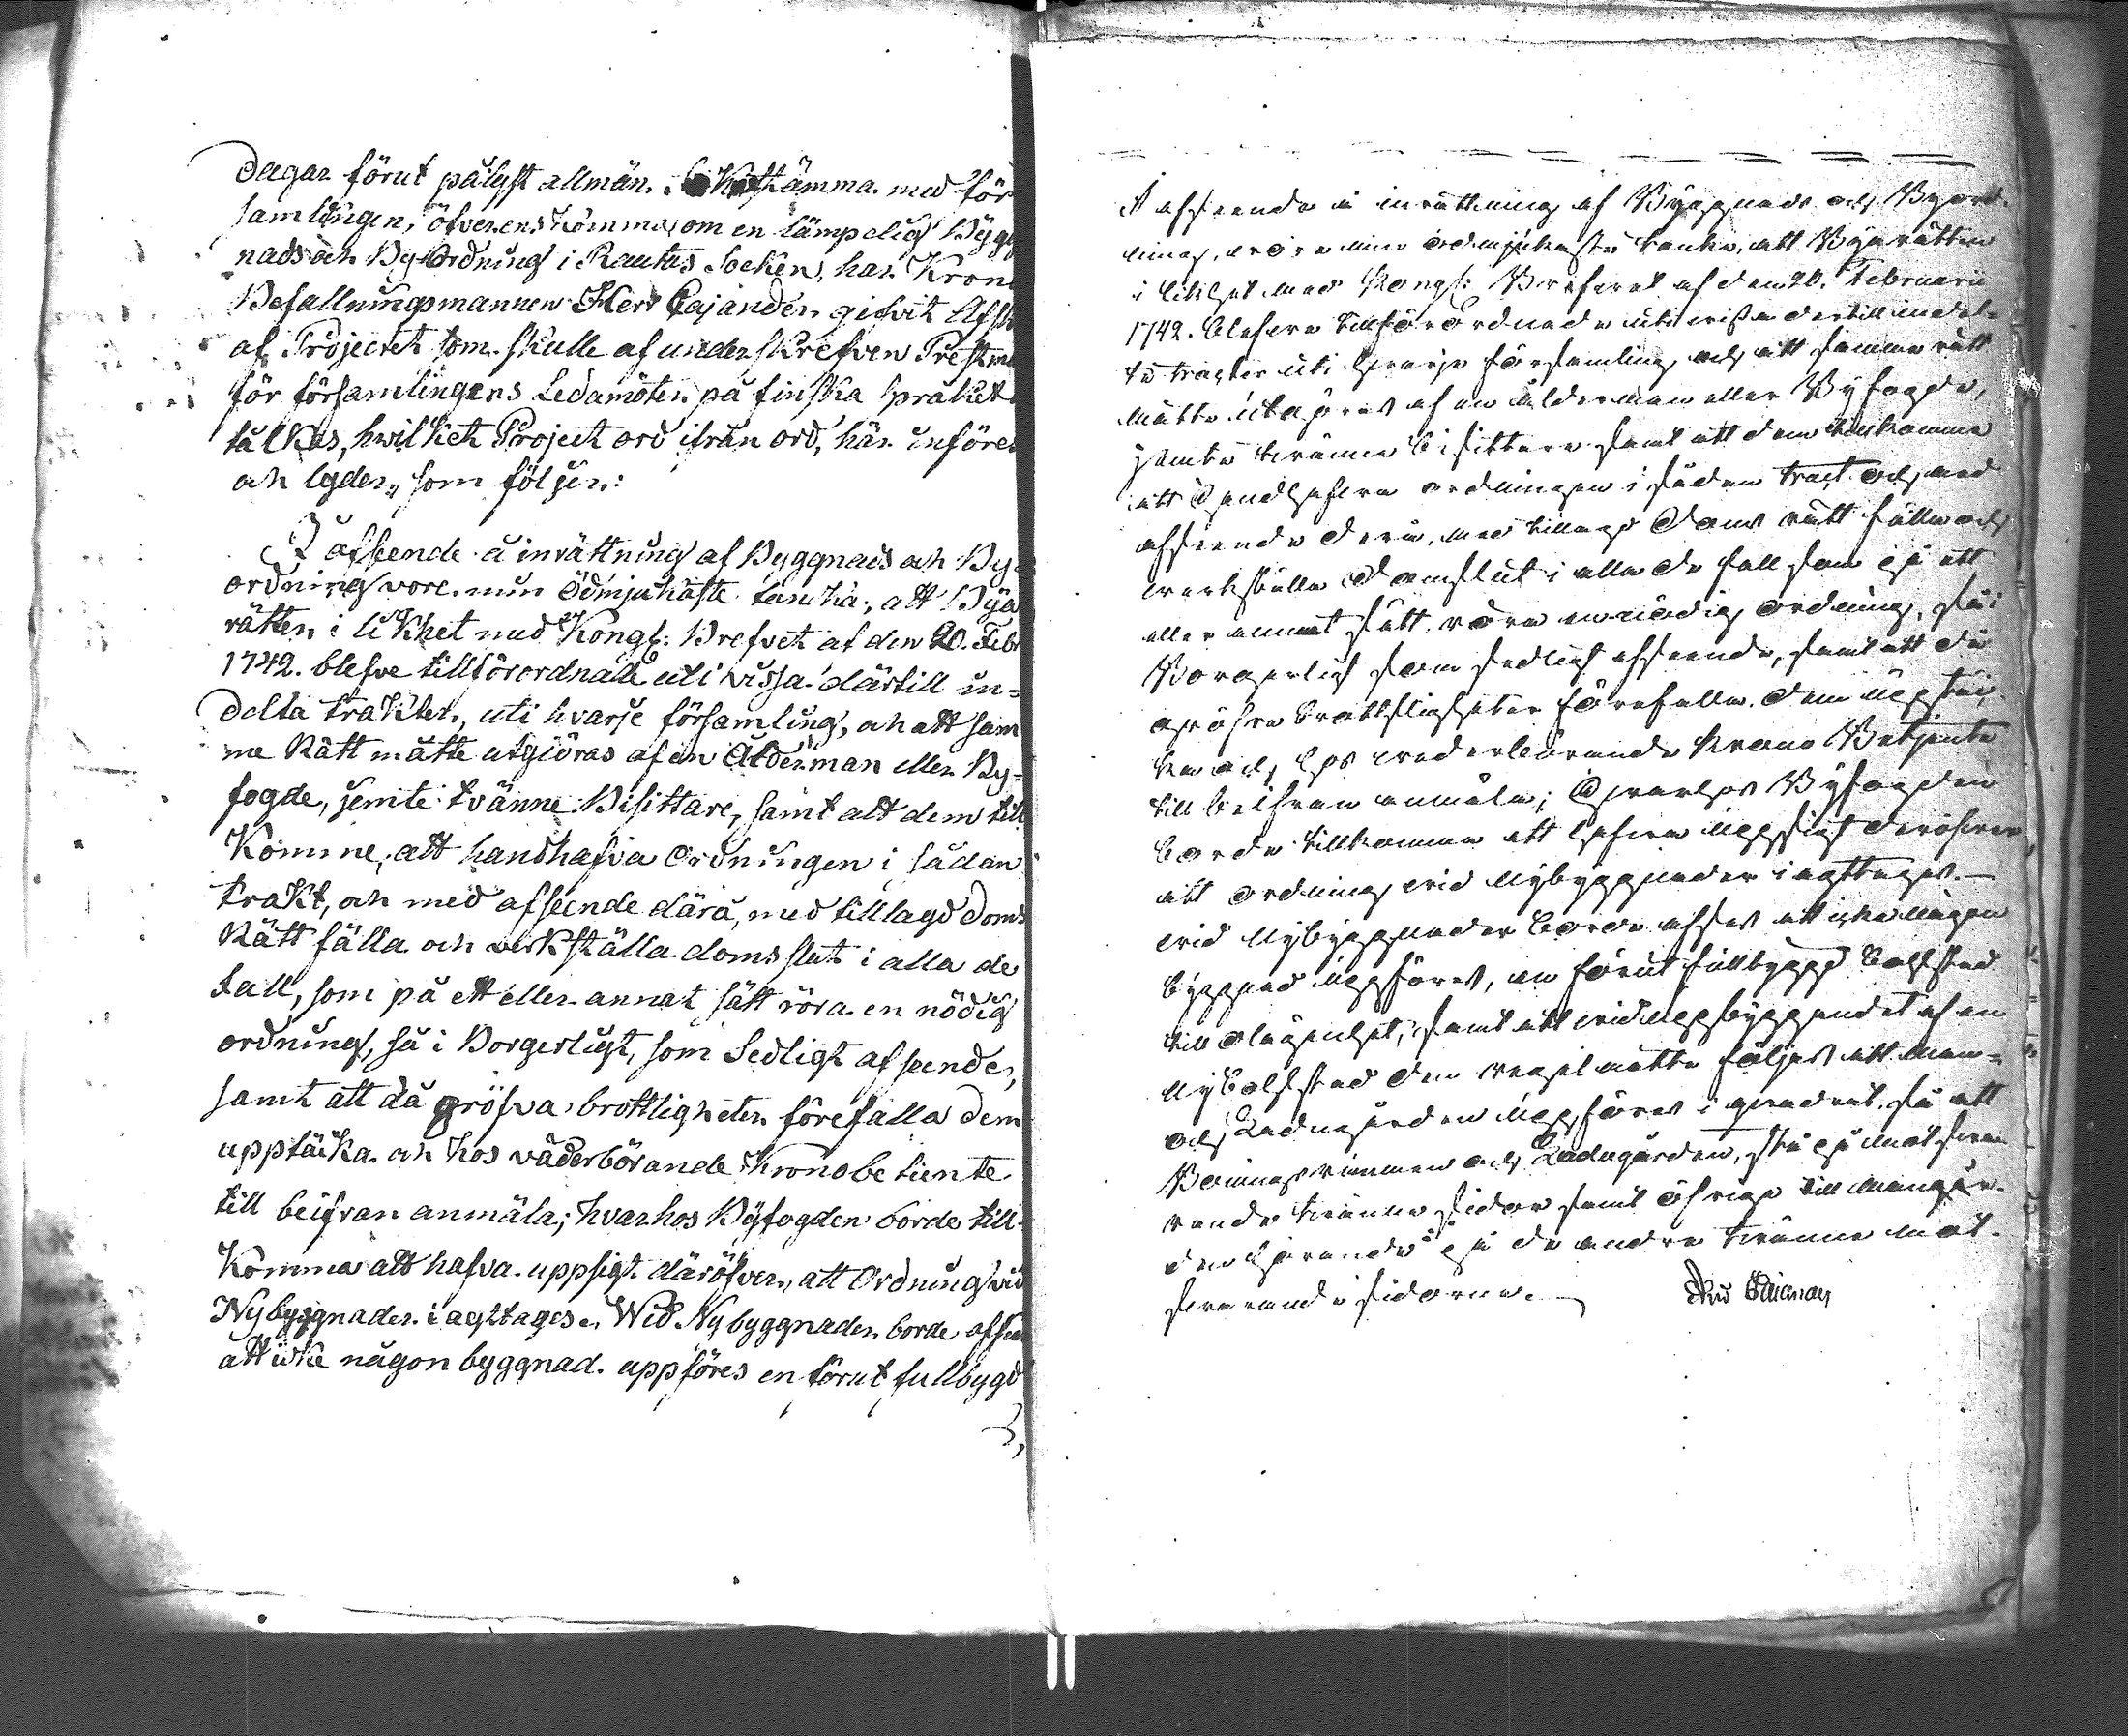 dagar förut pålyst allmän Sokstämma med för
samlingen, öfverenskomma om en lämpelig Bygg
nads och By Ordning i Rautus Socken, har Krono
Befallningsmannen Herr Cajander gifvit Afsk
af Projectet som skulle af underskrefven Prestm
för församlingens Ledamöter på finska språket
tålkas, hwilket Project ord ifrån ord, här införes
och lyder, som följer:
I afseende å inrättning af Byggnads och By
ordning vore min ödmjukaste tanka, att Bya
rätten i likhet med Kongl: Brefvet af den 20. Febr
1742. blefve tillförordnade uti vissa därtill in=
delta trakter, uti hvarje församling, och att sam
me Rätt måtte utgiöras af en Ålderman eller By=
fogde, jemte tvänne Bisittare, samt att dem till
komme, att handhafva ordningen i sådan
trakt, och med afseende därå, med tillagd doms
Rätt fälla och verkställa domslut i alla de
fall, som på ett eller annat sätt röra en nödig
ordning, så i Borgerligt, som Sedligt afseende,
samt att då gröfva brottligheter förefalla dem
upptäcka och hos väderbörande Kronobetiente
till beifran anmäla; hvarhos Byfogden borde till=
komma att hafva uppsigt däröfver, att Ordning vid
Nybyggnader i agttages. Wid Nybyggnader borde afses
att icke någon byggnad uppföres en förut fullbygd
I afseende å inrättning af Byggnads och Byord=
ning, vore min ödmjukaste tanke, att Byarätten
i likhet med Kongl: Brefvet af den 20. Februarii
1742. blefve tillförordnade uti vissa dertill indel=
te tracter uti hvarje församling och att samma rätt
måtte utgöras af en ålderman eller Byfogde,
jemte tvänne bisittare samt att dem tillkomme
att handhafva ordningen i sådan tract och med
afseende derå, med tillagd doms rätt fälla och
verkställa domslut i alla de fall som på ett
eller annat sätt röra en nödig ordning, så i
Borgerligt som sedligt afseende, samt att då
gröfre brottsligheter förefalla dem upptäc=
ka och hos vederbörande Krono Betjente
till beifran anmäla; hvarhos Byfogden
borde tillkomma att hafva uppsigt deröfver,
att ordning vid Nybyggnader iagttages. —
vid Nybyggnader borde afses att icke någon
byggnad uppföres, en förut fullbyggd bolstad
till olägenhet, samt att vid uppbyggandet af en
Ny bolstad den regel måtte följas att Man=
och Ladugården uppföres i quadrat, så att
Boningsrummen och Ladugården, stå på motsva
rande tvänne sidor samt öfrige till mangår=
den hörande på de andra tvänne mot=
svarande sidorna.